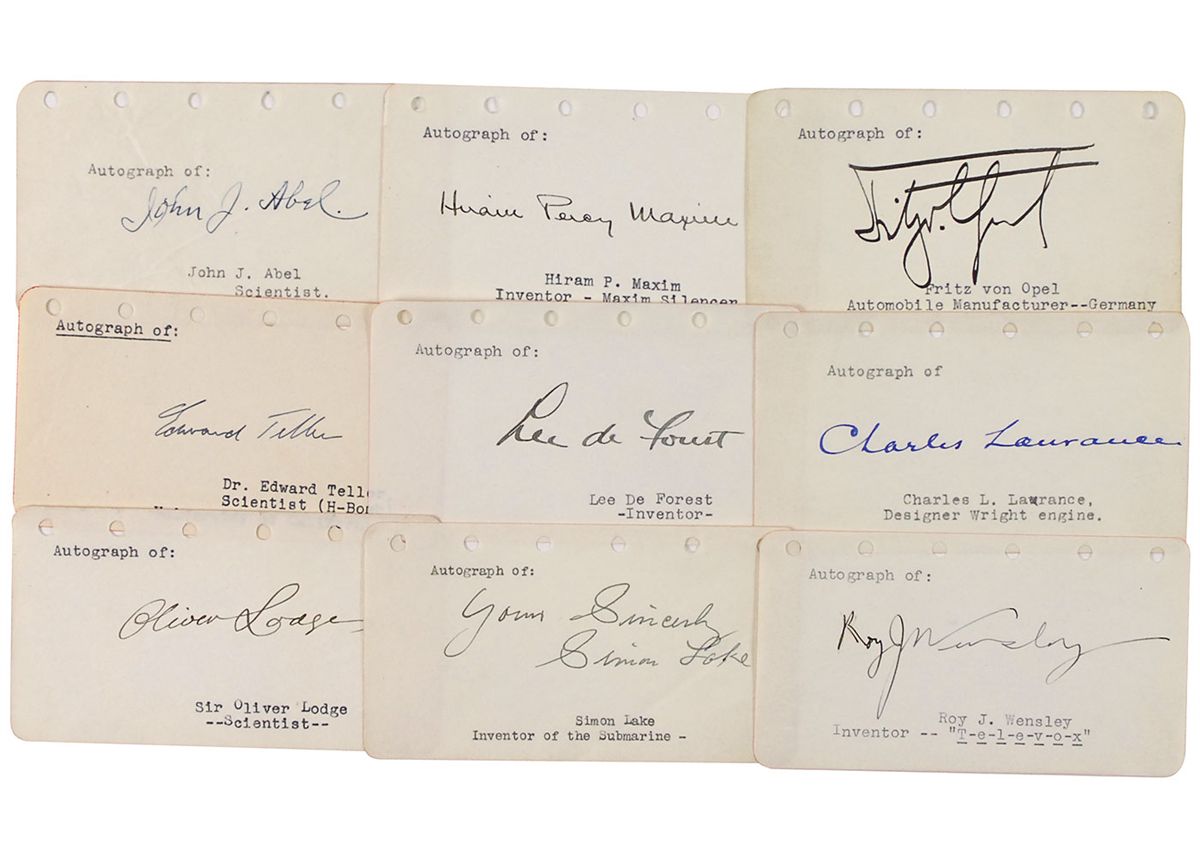 Autograph of:
John J. Abel.
John J. Abel
Scientist.
Autograph of:
Hiram Percy Maxim
Hiram P. Maxim
Inventor - Maxim Silencer
Autograph of:
Fritz v. Opel
Fritz von Opel
Automobile Manufacturer--Germany
Autograph of:
Edward Teller
Dr. Edward Teller
Scientist (H-Bo
Autograph of:
Lee de Forest
Lee De Forest
-Inventor-
Autograph of
Charles Lawrance
Charles L. Lawrance,
Designer Wright engine.
Autograph of:
Oliver Lodge
Sir Oliver Lodge
--Scientist--
Autograph of:
Yours Sincerely
Simon Lake
Simon Lake
Inventor of the Submarine -
Autograph of:
Roy J Wensley
Roy J. Wensley
Inventor -- "T-e-l-e-v-o-x"